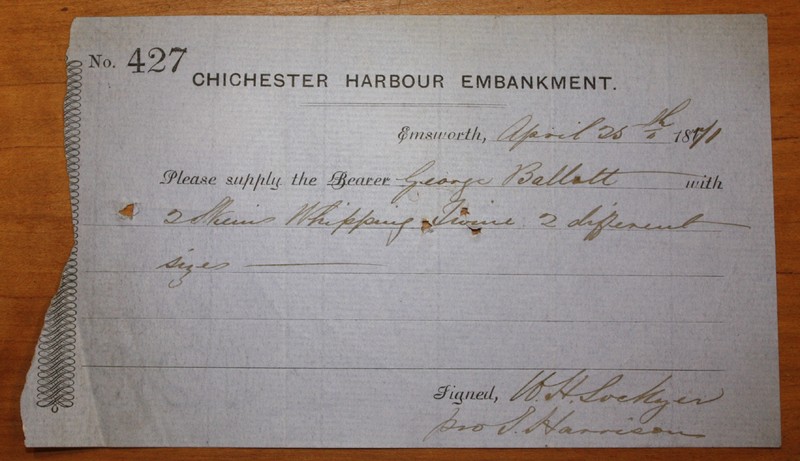 No. 427
CHICHESTER HARBOUR EMBANKMENT.
Emsworth, April 25th 1871
Please supply the Bearer George Ballott with
2 Skeins Whipping Twine 2 different
sizes
Signed, W. H. Lockyer
pro S. Harrison